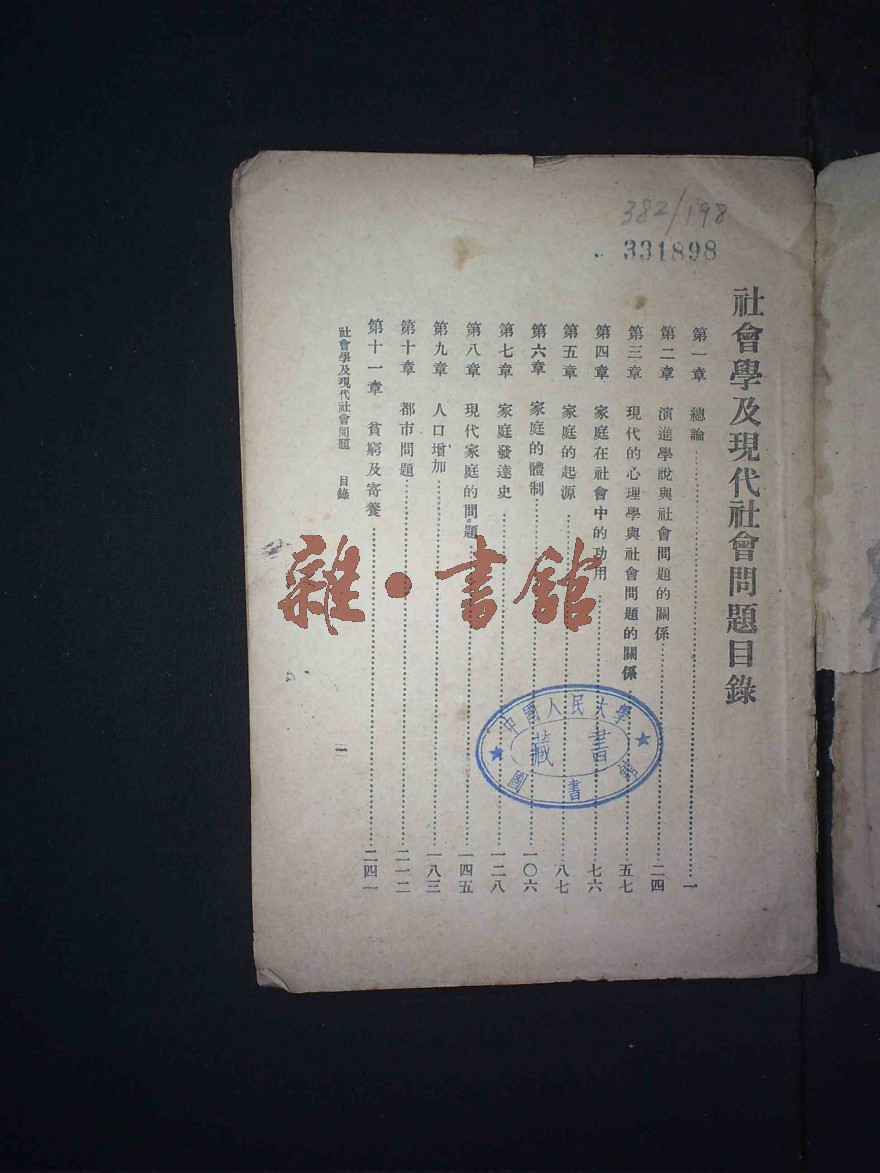 382/198
331898
社會學及現代社會問題目錄
第一章 總論 一
第二章 演進學說與社會問題的關係 二四
第三章 現代的心理學與社會問題的關係 五七
第四章 家庭在社會中的功用 七六
第五章 家庭的起源 八七
第六章 家庭的體制 一〇六
第七章 家庭發達史 一二八
第八章 現代家庭的問題 一四五
第九章 人口增加 一八三
第十章 都市問題 二一二
第十一章 貧窮及寄養 二四一
社會學及現代社會問題 目錄 一
中國人民大學
藏書
圖書館
雜·書館